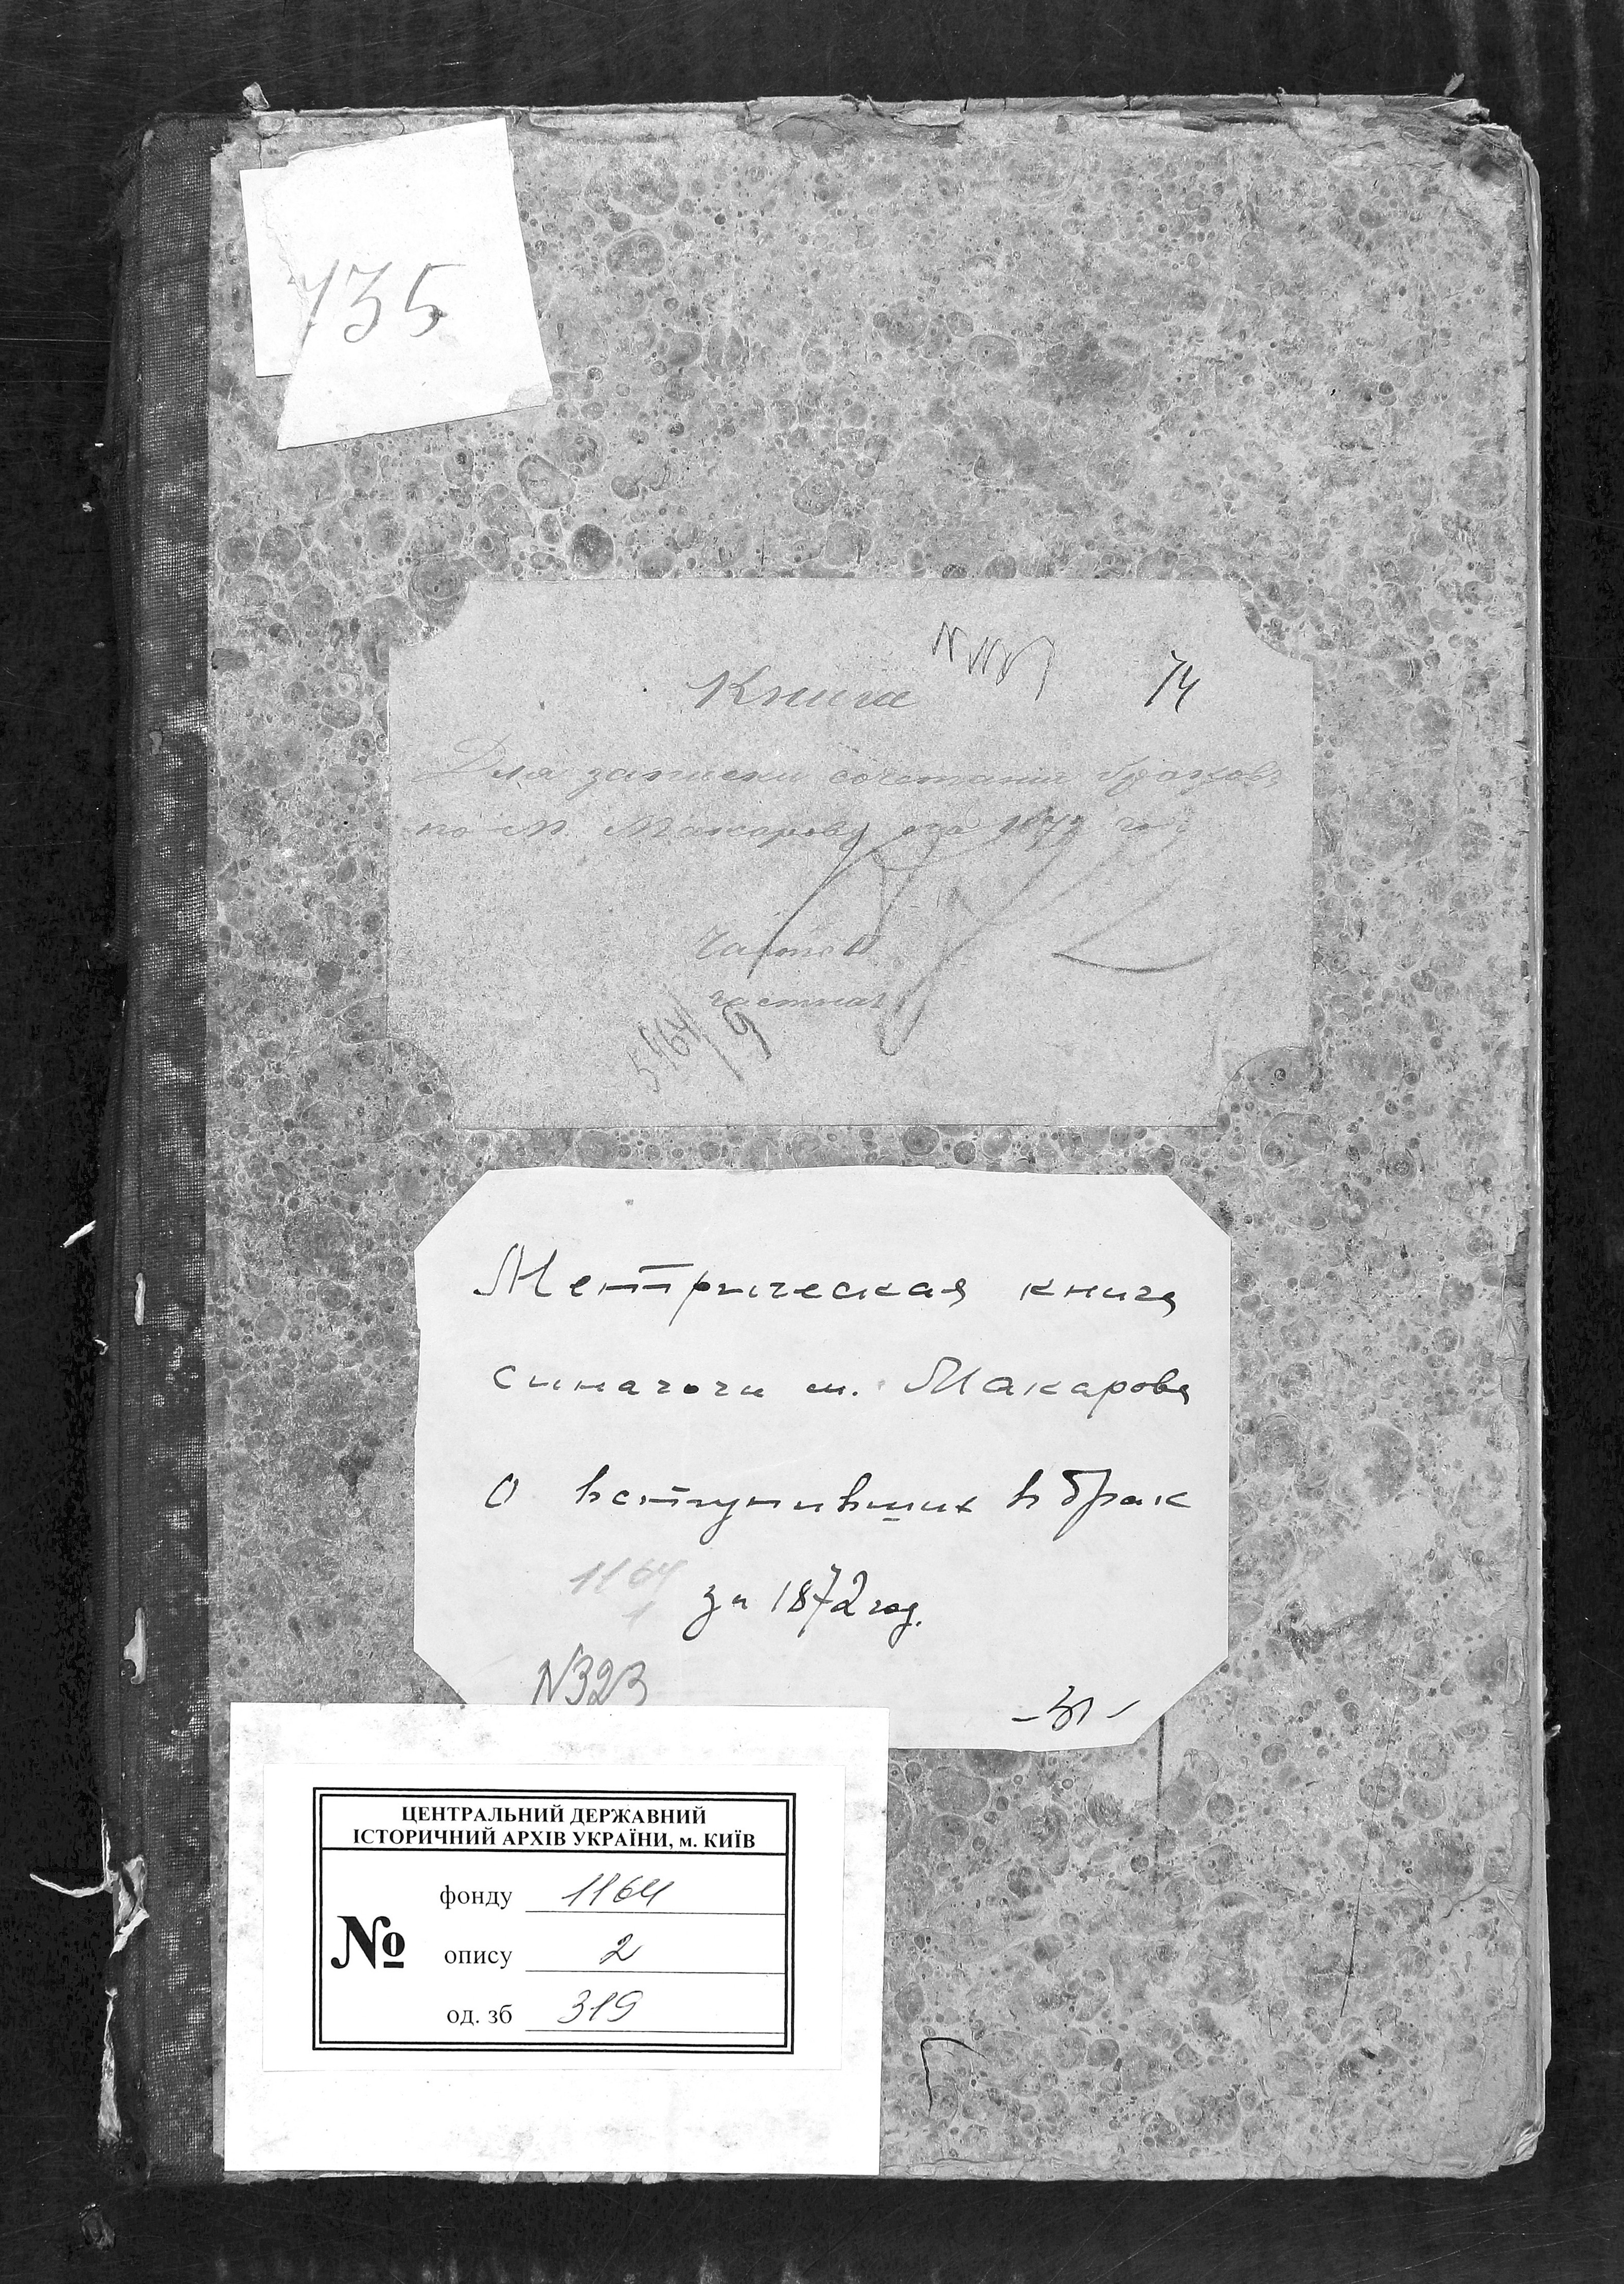 735
Книга
74
Для записки сочетания браковъ
по м. Макарову на 1872 годъ
Часть II
частная
5464/9
Метрическая книга
синагоги м. Макарова
О вступивших в брак
1164
1
за 1872 год.
N323
ЦЕНТРАЛЬНИЙ ДЕРЖАВНИЙ
ІСТОРИЧНИЙ АРХІВ УКРАЇНИ, м. КИЇВ
фонду 1164
№ опису 2
од. зб 319